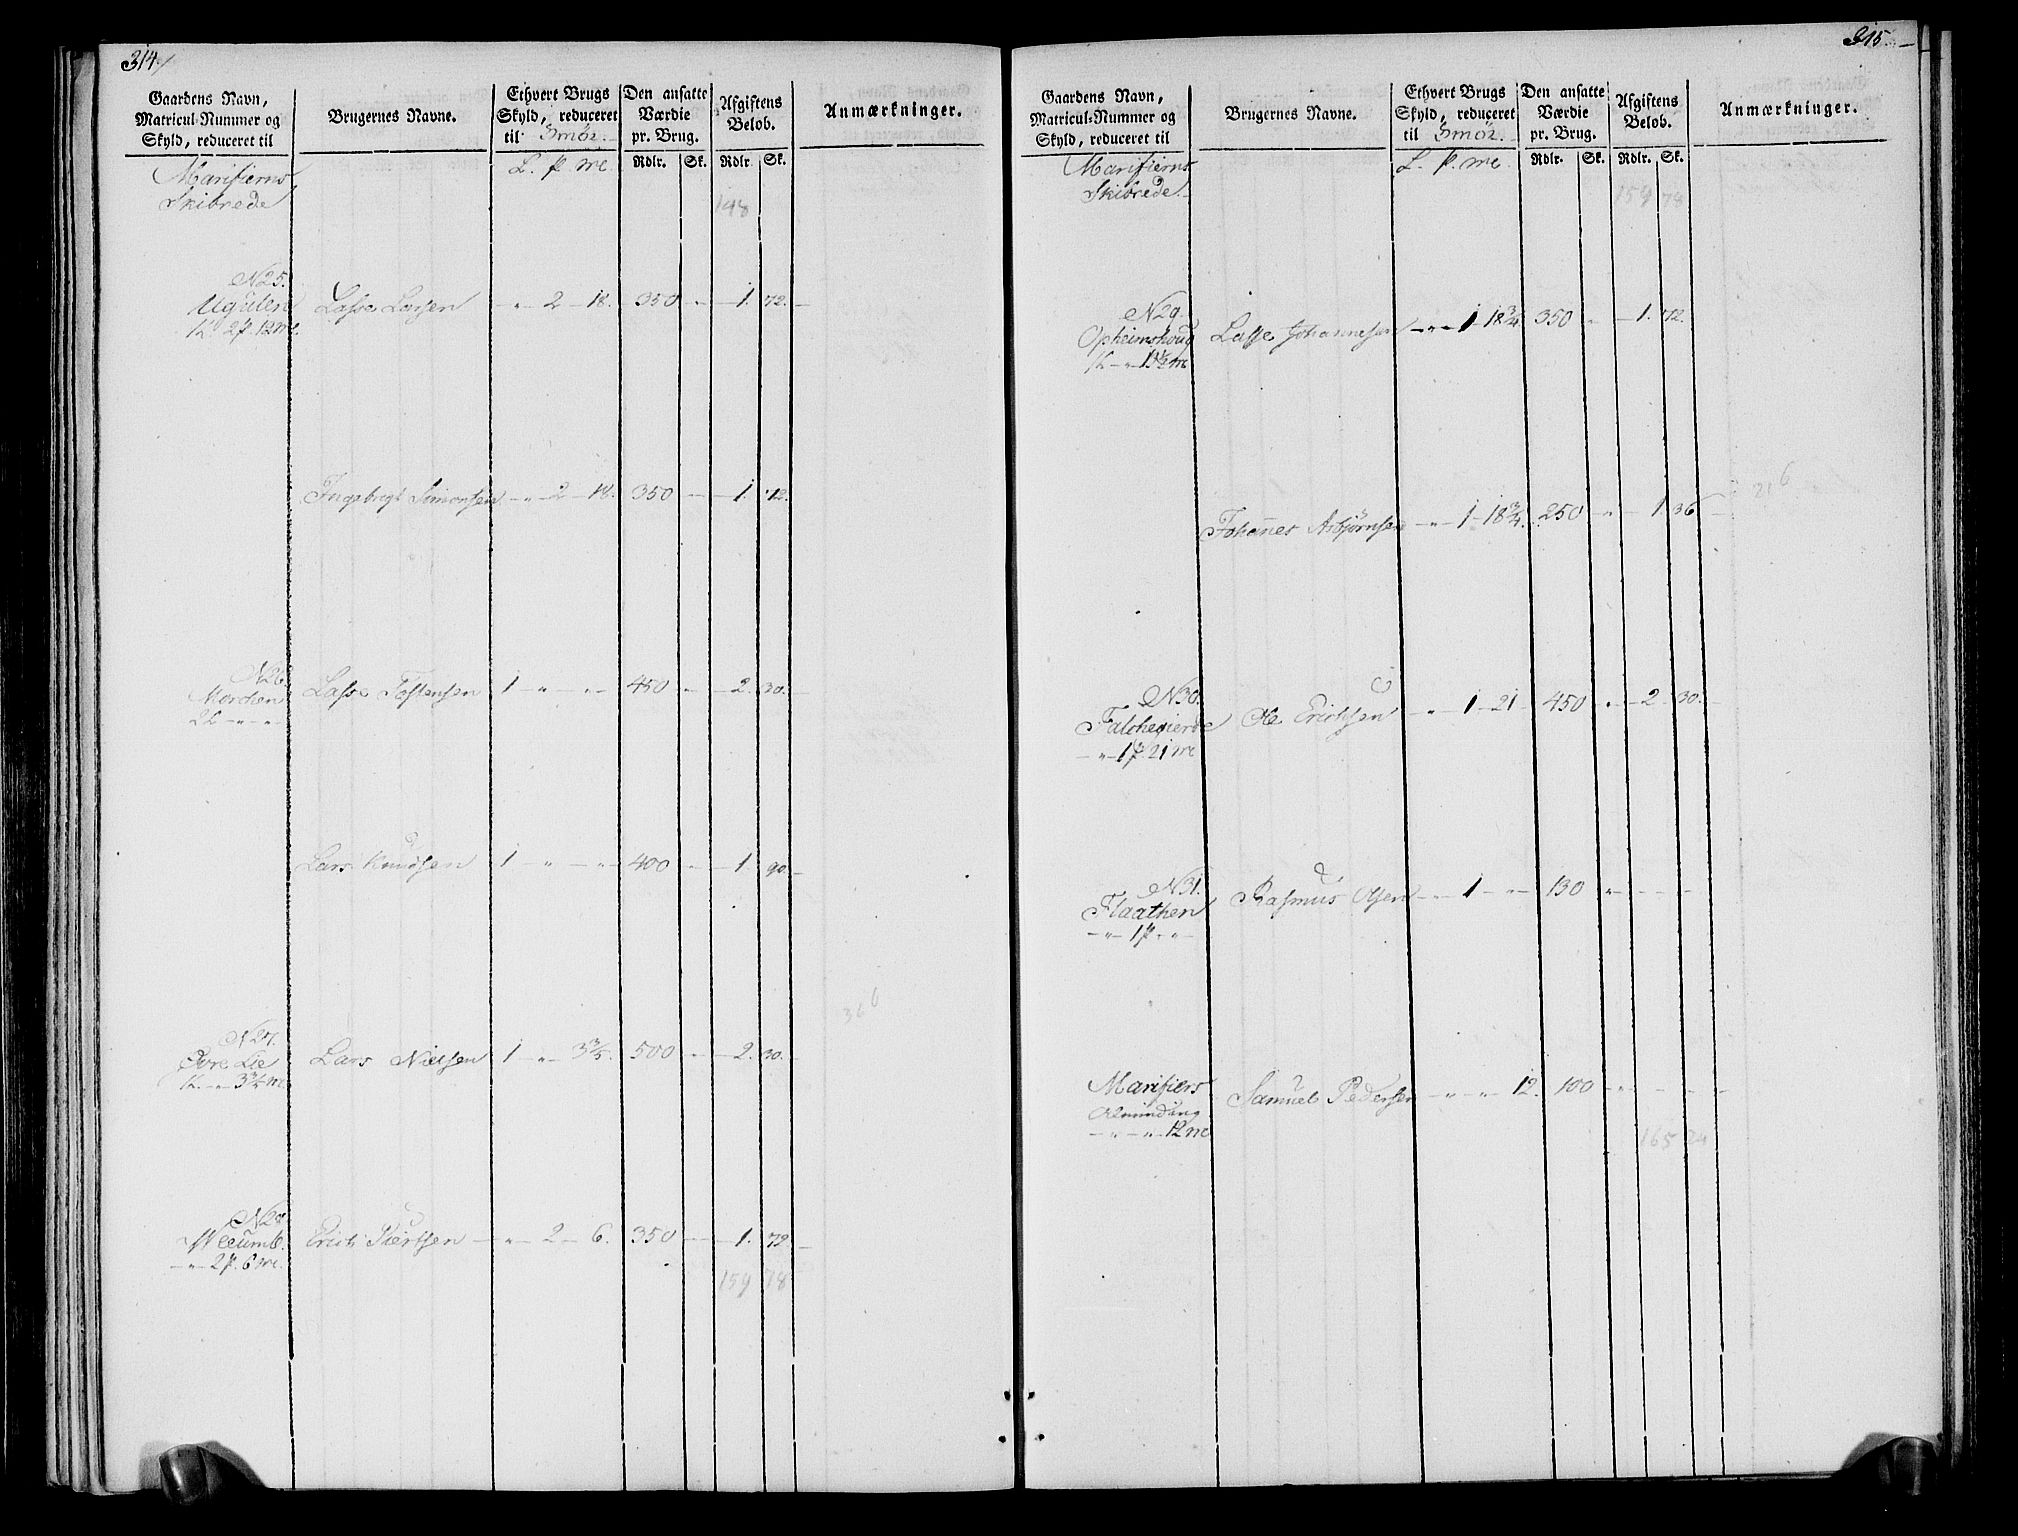 314
Gaardens Navn, Matricul-Nummer og Skyld, reduceret til
Brugernes Navne.
Ethvert Brugs Skyld, reduceret til Smör
Den ansatte Værdie pr. Brug.
Afgiftens Beløb.
Anmærkninger.
L. p. mc Rdlr. Sk. Rdlr. Sk.
Marifierns
Skibrede
148
N 25.
Ugulen Lasse Larsen " 2 18. 350 " 1. 72.
1L. 2p. 12mc.
Ingebrigt Simonsen " 2 18. 350 1. 72.
N 26.
Mordhen Lasse Tostensen 1 " " 450 2. 30.
2L " "
Lars Knudsen 1 " " 400 1. 90.
366
N 27.
Øvre Lie Lars Nielsen 1 " 3 3/5. 500 2. 30.
1L. " 3 3/4 mc
N 28.
Erich Siursen " 2 6. 350 1. 72.
" 2p. 6mc.
159 78
315
Gaardens Navn, Matricul-Nummer og Skyld, reduceret til
Brugernes Navne.
Ethvert Brugs Skyld, reduceret til Smör
Den ansatte Værdie pr. Brug.
Afgiftens Beløb.
Anmærkninger.
L. p. mc. Rdlr. Sk. Rdlr. Sk.
Marifierns
Skibrede
159 78
N 29.
Opheimshoug Lasse Johannesen " 1 18 3/4 350 1. 72.
216
Johannes Asbjørnsen " 1 18 3/4. 250 " 1 36
N 30.
Ole Erichsen " 1 21 450 " 2 30.
" 1p. 21mc
N 31.
Flaathen Rasmus Olsen " 1 " 130 "
" 1p. "
Marifiers Samuel Pedersen " " 12. 100 "
Alminding
" " 12mc
165 24